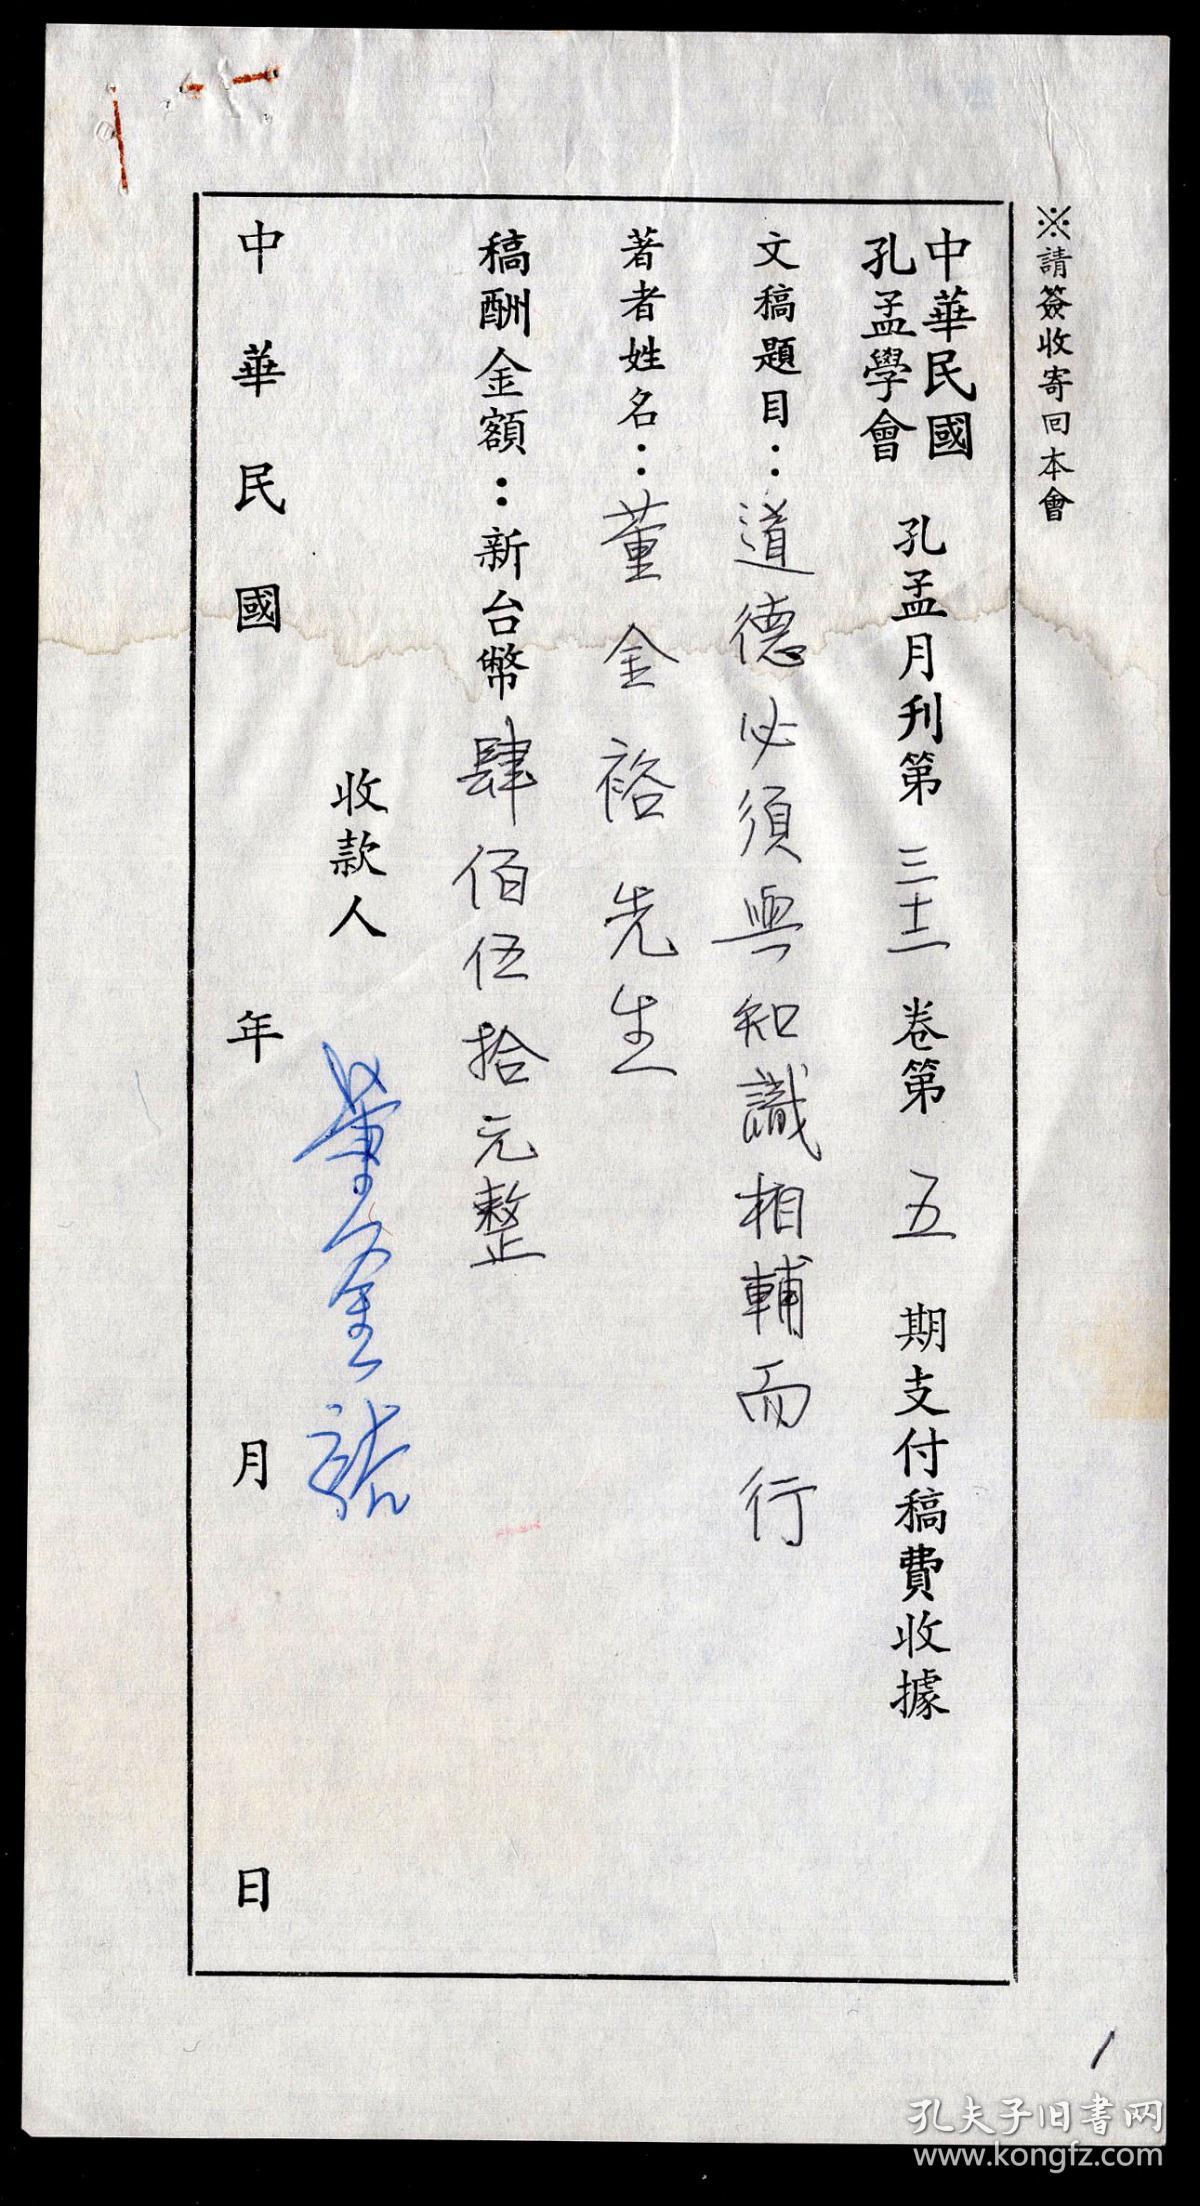 ※請簽收寄回本會
中華民國孔孟學會 孔孟月刊第三十二卷第五期支付稿費收據
文稿題目：道德必須與知識相輔而行
著者姓名：董金裕先生
稿酬金額：新台幣肆佰伍拾元整
收款人 董金裕
中華民國 年 月 日
1
孔夫子旧书网
www.kongfz.com